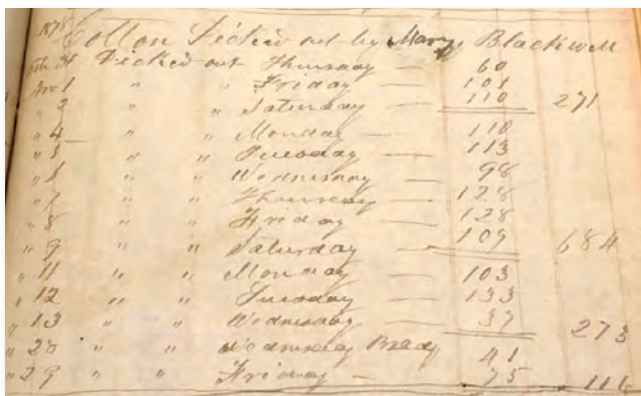 1878
Cotton Picked out by Mary Blackwell
Oct 31 Picked out Thursday — 60
Nov 1 " " Friday — 101
" 2 " " Saturday — 110 271
" 4 " " Monday — 110
" 5 " " Tuesday — 113
" 6 " " Wednesday — 98
" 7 " " Thursday — 128
" 8 " " Friday — 128
" 9 " " Saturday — 109 684
" 11 " " Monday — 103
" 12 " " Tuesday — 133
" 13 " " Wednesday — 37 273
" 20 " " Wednesday 41
" 29 " " Friday — 75 116